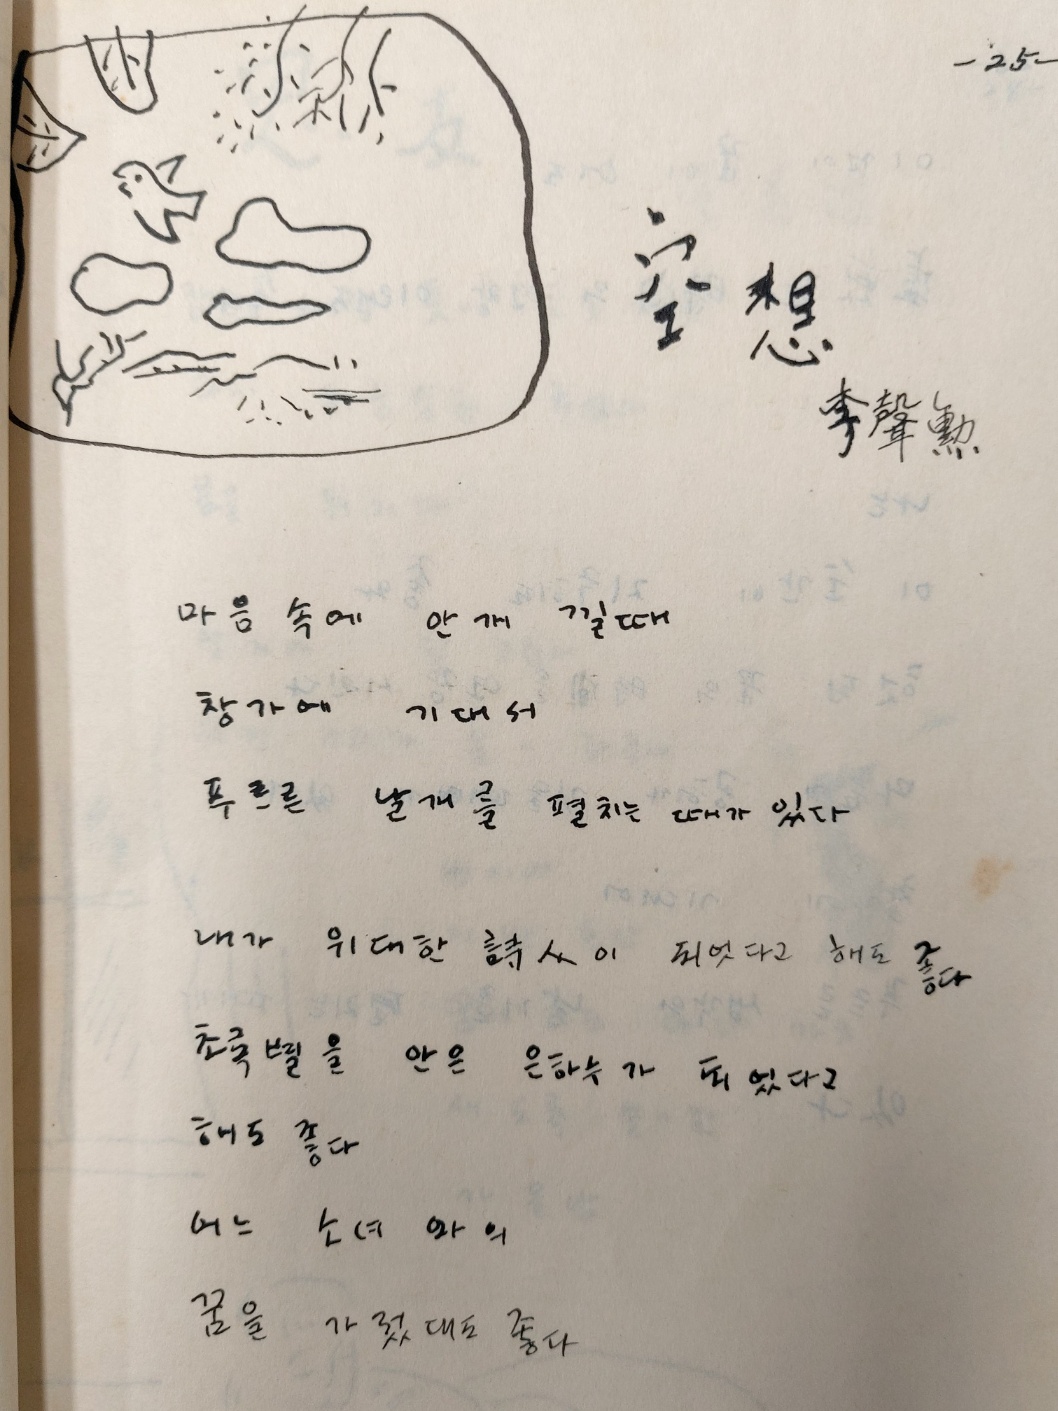 -25-
空想
李聲勲
마음 속에 안개 낄때
창가에 기대서
푸르른 날개를 펼치는 때가 있다
내가 위대한 詩人이 되었다고 해도 좋다
초록별을 안은 은하수가 되었다고
해도 좋다
어느 소녀와의
꿈을 가졌대도 좋다